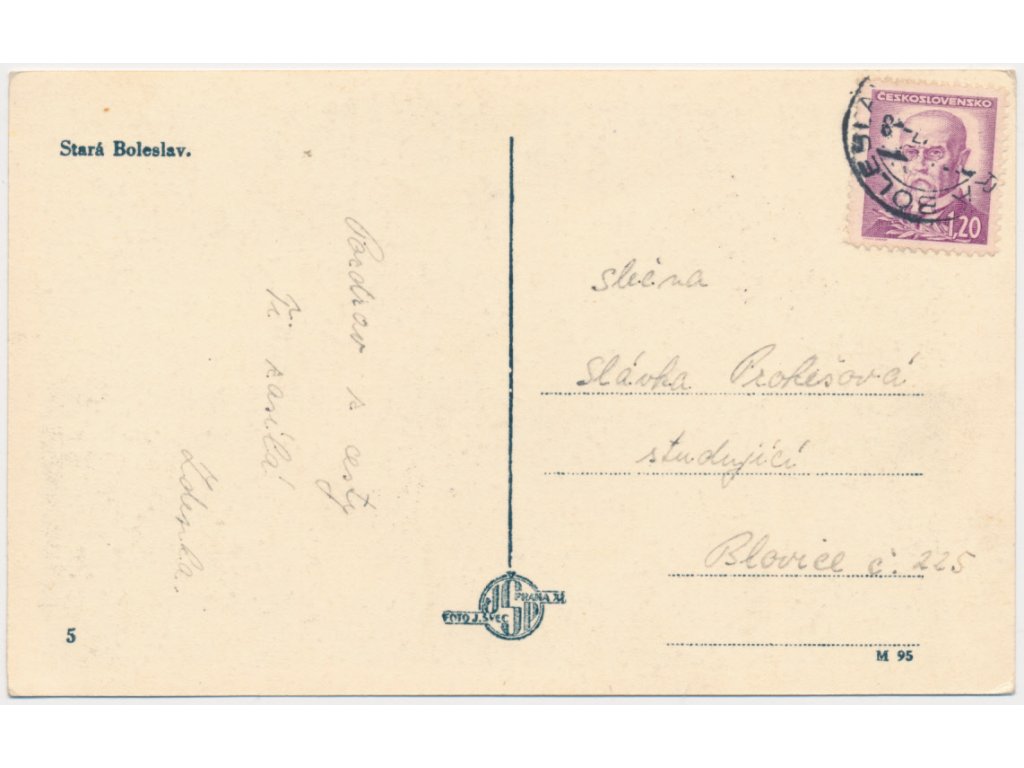 Stará Boleslav.
Pozdrav z cesty
Ti zasílá!
Zdenka.
5
FOTO J. ŠVEC
PRAHA XI
JŠP
ČESKOSLOVENSKO
1,20
BOLESLA
slečna
Slávka Prokešová
studující
Blovice č. 225
M 95